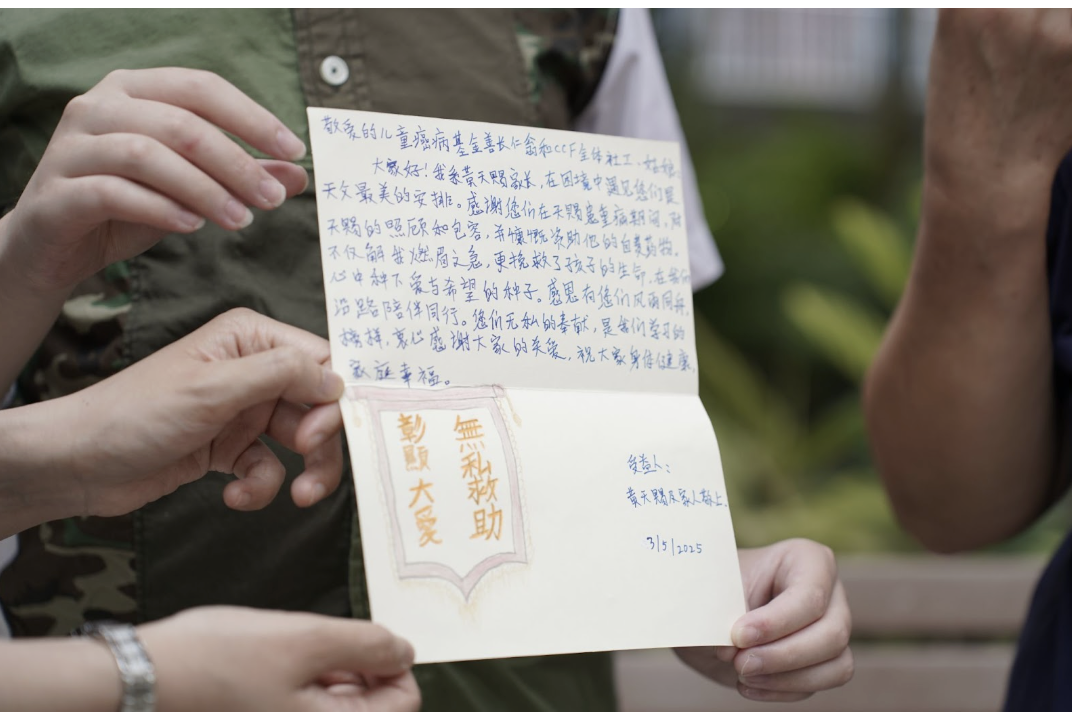 敬爱的儿童癌病基金善长仁翁和CCF全体社工、姑娘:
大家好!我系黄天赐家长,在困境中遇见您们是
天父最美的安排。感谢您们在天赐患重病期间,对
天赐的照顾和包容,并慷慨资助他的自费药物。
不仅解我燃眉之急,更挽救了孩子的生命,在我们
心中种下爱与希望的种子。感恩有您们风雨同舟,
沿路陪伴同行。您们无私的奉献,是我们学习的
榜样,衷心感谢大家的关爱,祝大家身体健康,
家庭幸福。
無私救助
彰顯大愛
受益人:
黄天赐及家人敬上
3/5/2025